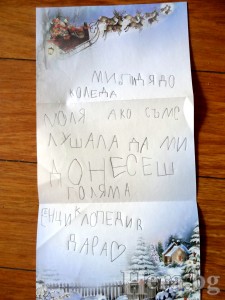 МИЛИ ДЯДО
КОЛЕДА
МОЛЯ АКО СЪМ С
ЛУШАЛА ДА МИ
ДОНЕСЕШ
ГОЛЯМА
ЕНЦИКЛОПЕДИЯ
ДАРА